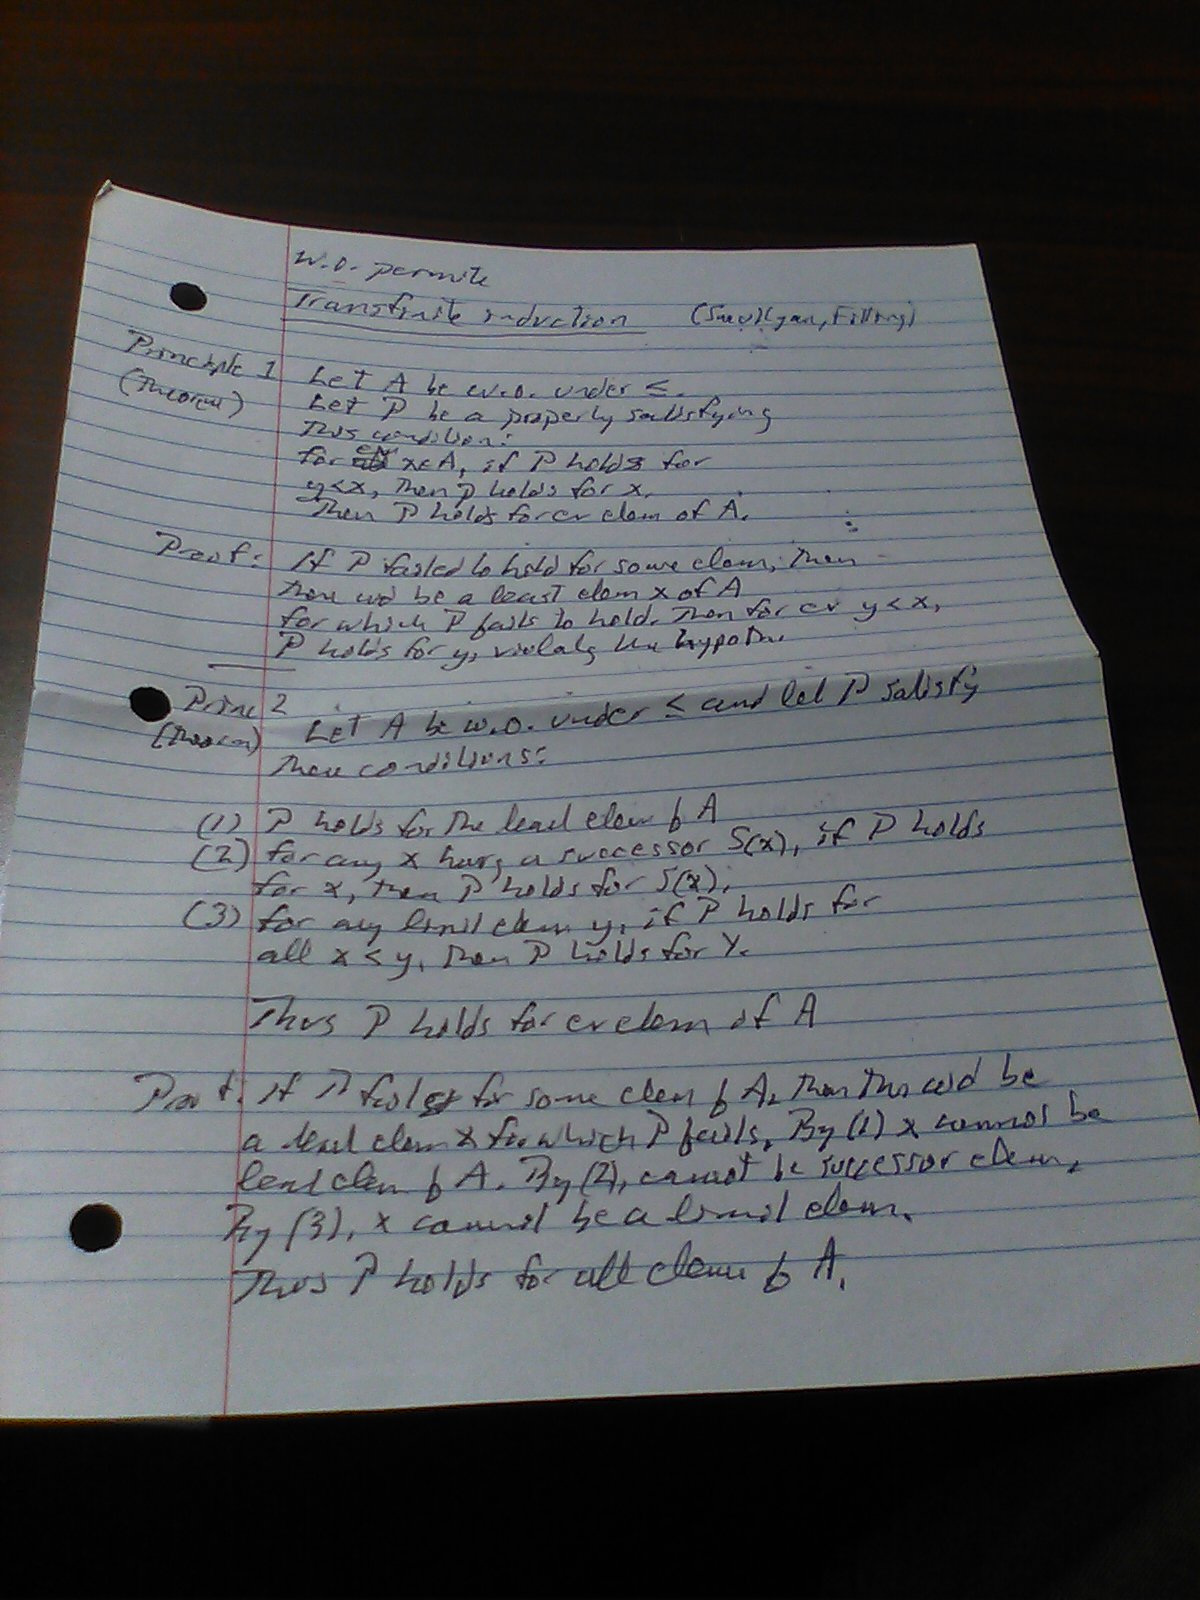 W.O. permits
Transfinite induction (Smullyan, Fitting)
Principle 1 Let A be w.o. under ≤.
(Theorem) Let P be a property satisfying
this condition:
for ev x∈A, if P holds for
y<x, then P holds for x.
Then P holds for ev elem of A.
Proof: If P failed to hold for some elem, then
there wd be a least elem x of A
for which P fails to hold. Then for ev y<x,
P holds for y, violatg the hypoth.
Princ 2
(Theorem) Let A be w.o. under ≤ and let P satisfy
these conditions:
(1) P holds for the least elem of A
(2) for any x havg a successor S(x), if P holds
for x, then P holds for S(x).
(3) for any limit elem y, if P holds for
all x < y, then P holds for y.
Thus P holds for ev elem of A
Proof: If P fails for some elem of A, then ther wd be
a least elem x for which P fails. By (1) x cannot be
least elem of A. By (2), cannot be successor elem.
By (3), x cannot be a limit elem.
Thus P holds for all elem of A.